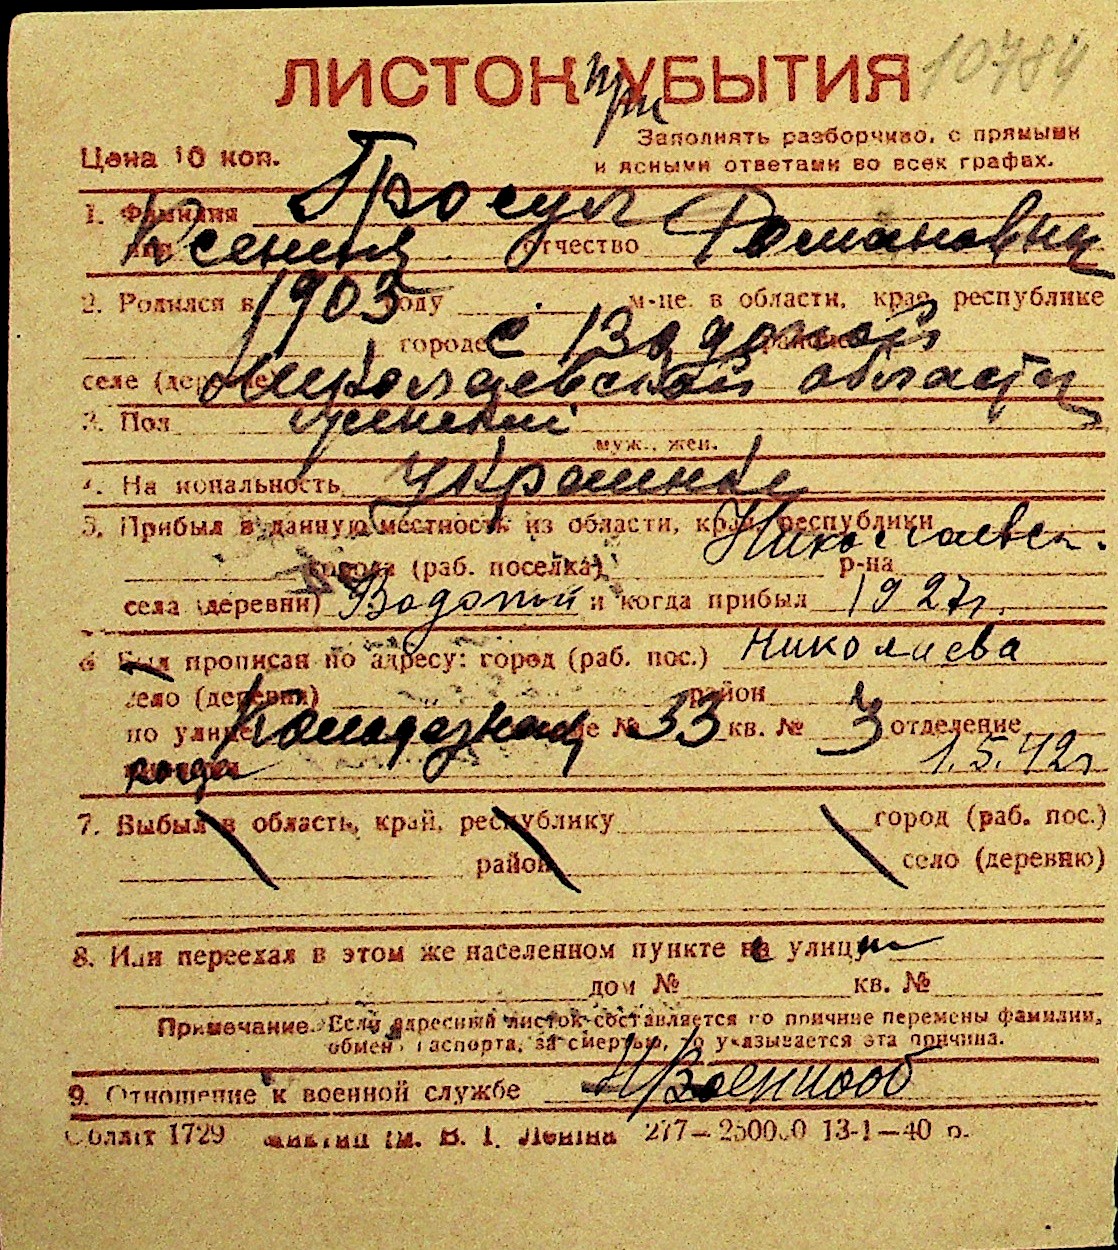 ЛИСТОК при УБЫТИЯ 10784
Цена 10 коп.
Заполнять разборчиво, с прямыми
и ясными ответами во всех графах.
1. Фамилия Гросул
имя Ксения отчество Романовна
2. Родился в 1903 году м-це. в области, крае, республике
городе с Водопой районе
селе (деревне) Николаевской области
3. Пол женский
муж., жен.
4. Национальность украинка
5. Прибыл в данную местность из области, края, республики Николаевск.
города (раб. поселка) р-на
села (деревни) Водопой и когда прибыл 1927г.
6. Был прописан по адресу: город (раб. пос.) Николаева
село (деревня) район
по улице № 33 кв. № 3 отделение
1.5.42г
7. Выбыл в область, край, республику город (раб. пос.)
район село (деревню)
8. Или переехал в этом же населенном пункте на улицу
дом № кв. №
Примечание. Если адресный листок составляется по причине перемены фамилии,
обмена паспорта, за смертью, то указывается эта причина.
9. Отношение к военной службе Н/военнооб
Обллiт 1729 iм. В. I. Ленiна 277—250000 13-1—40 р.